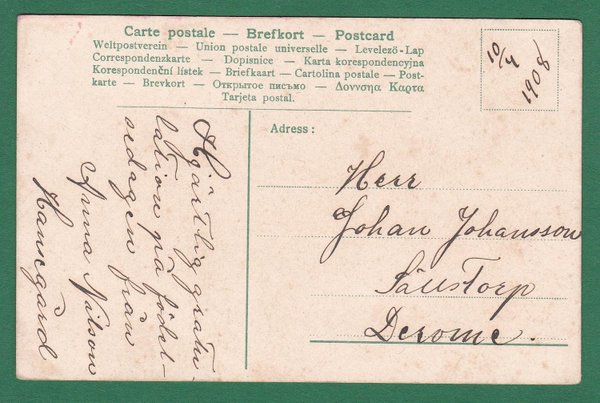 Carte postale — Brefkort — Postcard
Weltpostverein — Union postale universelle — Levelező-Lap
Correspondenzkarte — Dopisnice — Karta korespondencyjna
Korespondenční lístek — Briefkaart — Cartolina postale — Post-
karte — Brevkort — Открытое письмо — Δοννσηα Καρτα
Tarjeta postal.
10/4
1908
Hjärtlig gratu-
lation på födel-
sedagen från
Anna Nilsson
Hamregård
Adress:
Herr
Johan Johansson
Sällstorp
Derome.